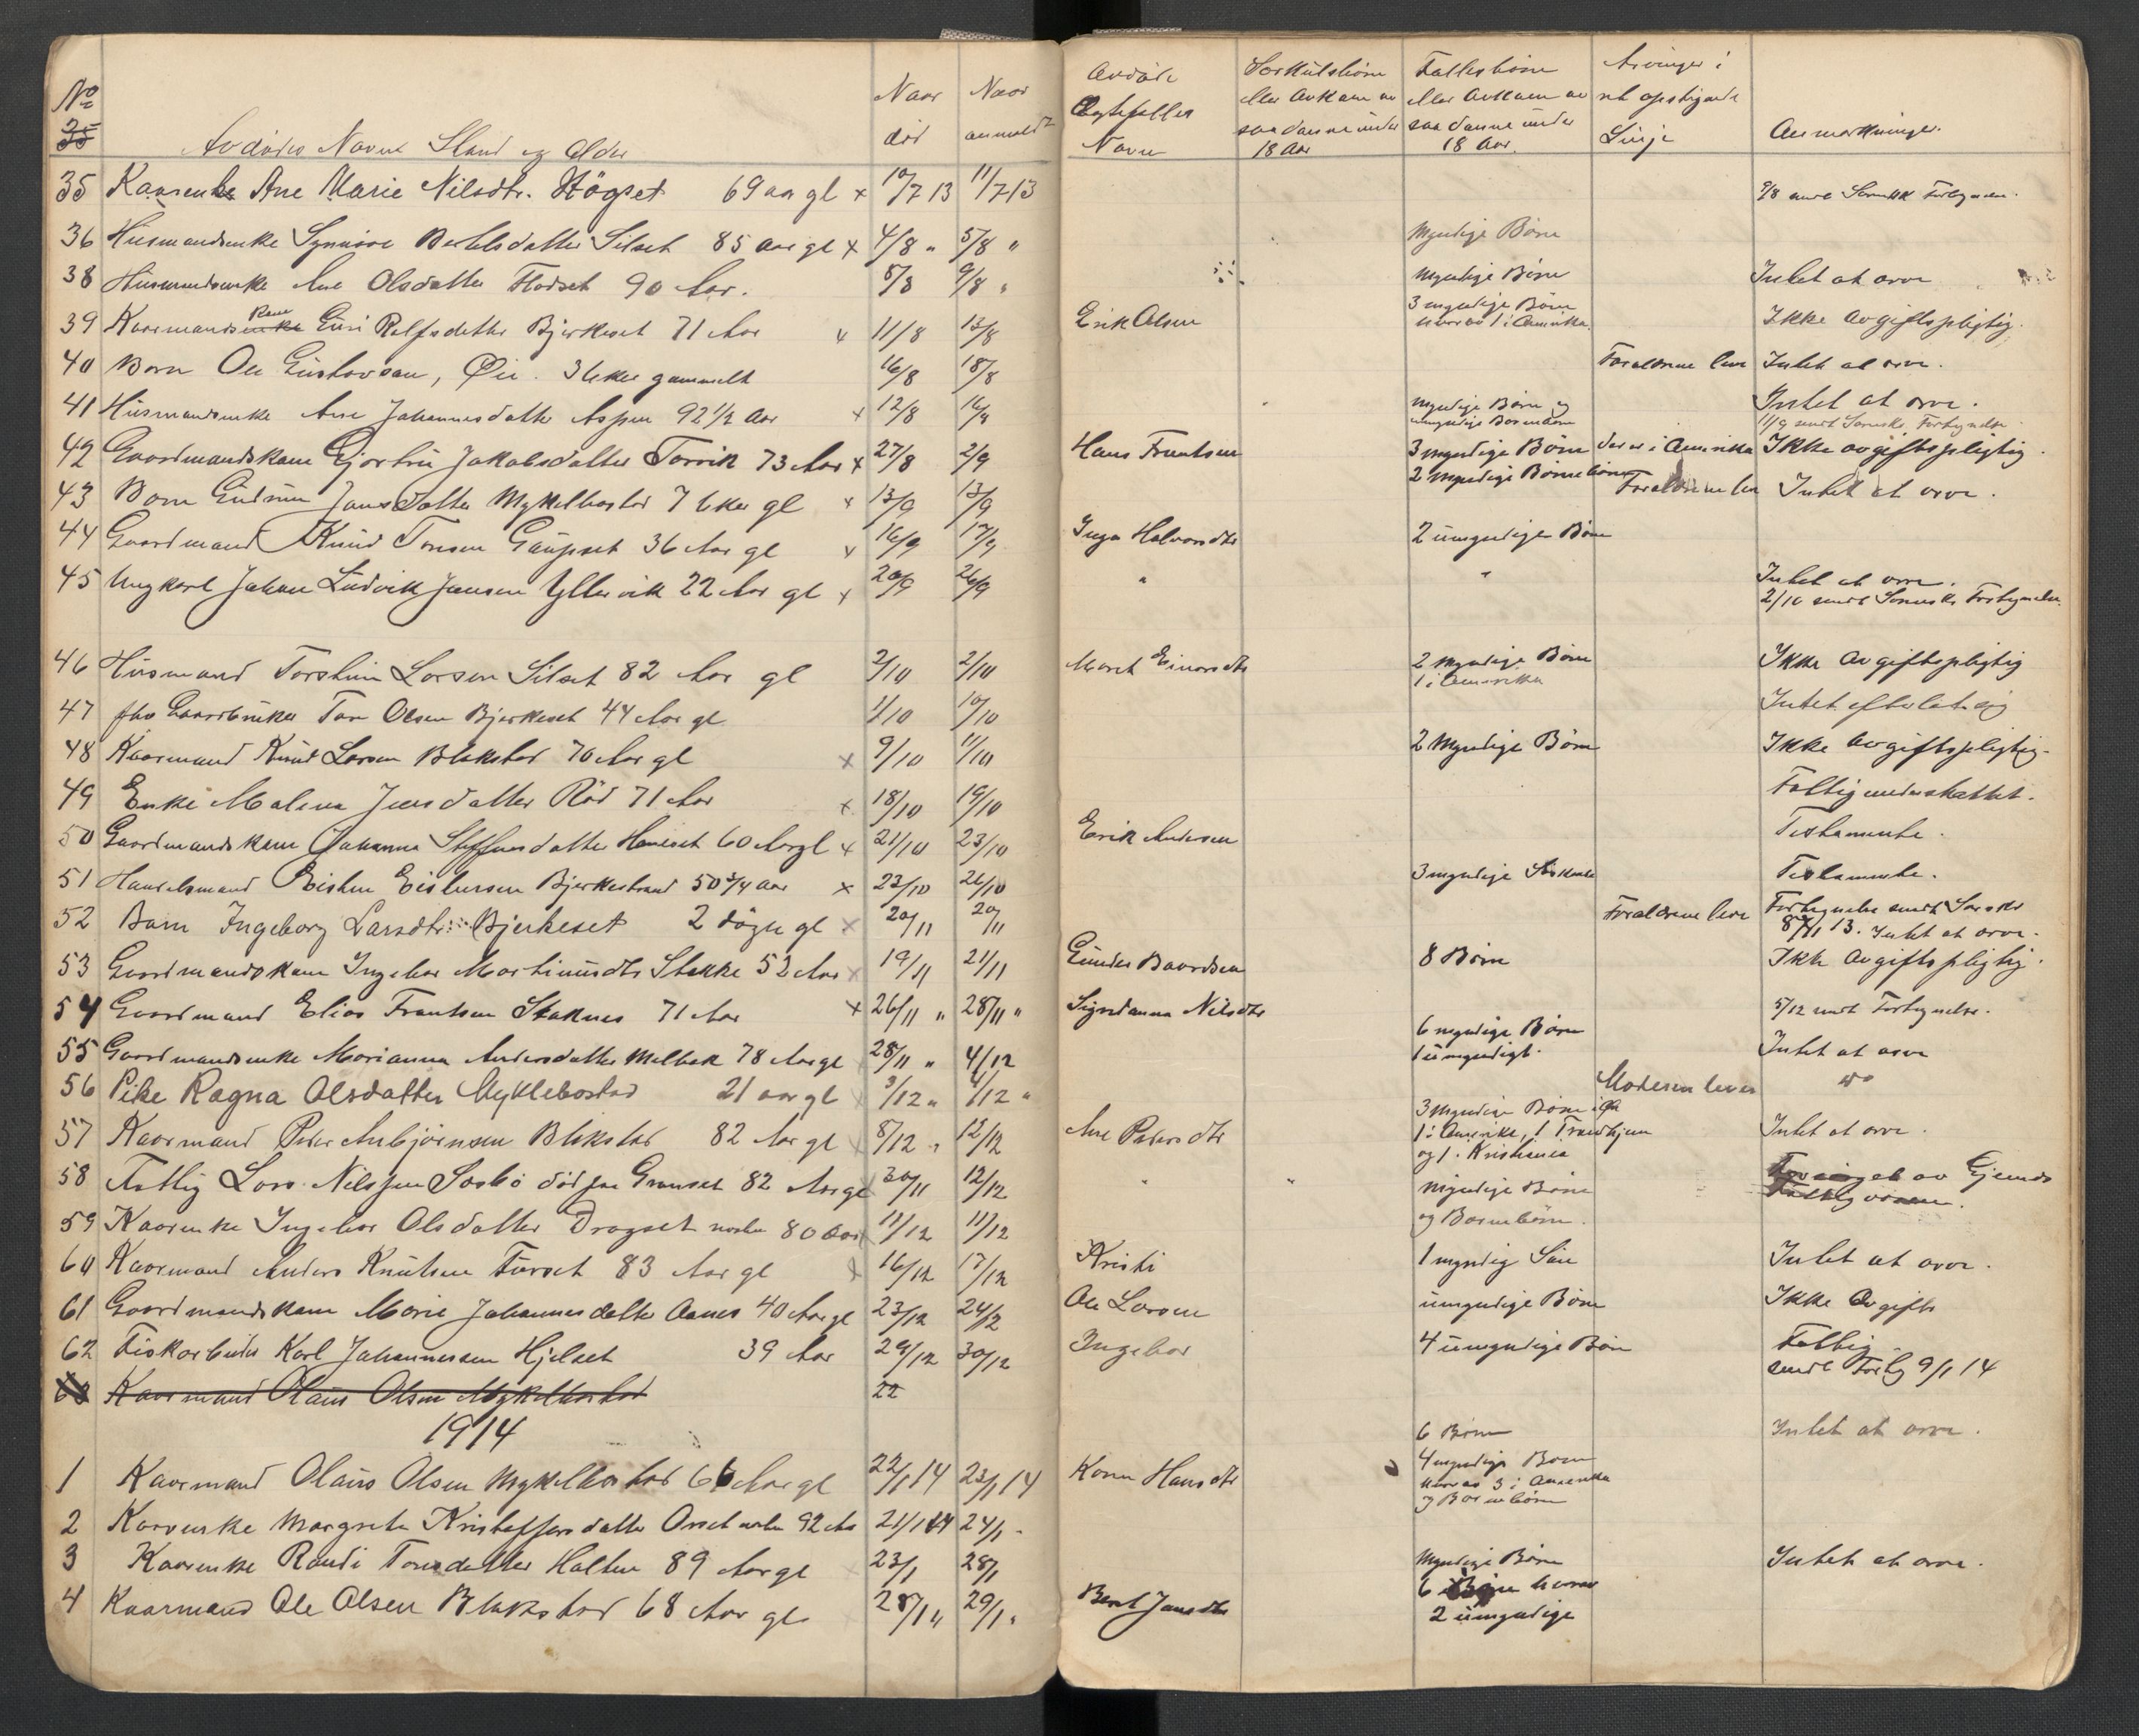 No
35
Avdødes Navne Stand og Alder
Naar død
Naar anmeldt
Avdøde Ægtefælles Navn
Særkulsbørn eller Avkam av saadanne under 18 Aar
Fællesbørn eller Avkam av saadanne under 18 Aar.
Arvinger i ret opstigende Linje
Anmærkninger.
35 Kaarenke Ane Marie Nilsdtr. Högset 69 aar gl x 10/7 13 11/7 13 5/8 sendt Fortegnelse.
36 Husmandsenke Synnøve Bertelsdatter Silset 85 aar gl x 4/8 " 5/8 " Myndige Børn
38 Husmandsenke Ane Olsdatter Flodset 90 Aar. 8/8 9/8 " Myndige Børn Intet at arve
39 Kaarmandsenke Kone Guri Rolfsdatter Bjerkeset 71 Aar x 11/8 13/8 Erik Olsen 3 myndige Børn hvorav 1 i Amerika. Ikke Avgiftspligtig.
40 Barn Ole Gustavsen, Øie. 3 Uker gammelt 16/8 18/8 Forældrene lever Intet at arve.
41 Husmandsenke Ane Johannesdatter Aspen 92 1/2 Aar x 12/8 16/8 myndige Børn og umyndige Barnebørn Intet at arve.
11/9 sendt Sorensks. Fortegnelse
42 Gaardmandskone Gjertru Jakobsdatter Torvik 73 Aar x 27/8 2/9 Hans Frantsen 3 myndige Børn der er i Amerika Ikke avgiftspligtig.
2 myndige Børnebørn
43 Barn Gudrun Jansdatter Mykelbostad 7 Uker gl x 13/9 13/9 Forældrene lever Intet at arve.
44 Gaardmand Knud Tonsen Gaupset 36 Aar gl x 16/9 17/9 Inga Halvorsdtr 2 umyndige Børn
45 Ungkarl Johan Ludvik Jensen Yttervik 22 Aar gl x 20/9 26/9 " " Intet at arve.
2/10 sendt Sorensks Fortegnelse.
46 Husmand Torstein Larsen Silset 82 Aar gl 2/10 2/10 Marit Einarsdtr 2 myndige Børn 1 i Amerika Ikke Avgiftspligtig
47 fhv Gaardbruker Tore Olsen Bjerkeset 44 Aar gl 1/10 10/10 Intet efterlat sig
48 Kaarmand Knut Larsen Blakstad 70 Aar gl x 9/10 11/10 2 Myndige Børn Ikke Avgiftspligtig.
49 Enke Malena Jensdatter Rød 71 Aar x 18/10 19/10 Fattigunderstøttet.
50 Gaardmandskone Johanna Steffensdatter Haneset 60 Aar gl x 21/10 23/10 Erik Andersen Testamente.
51 Handelsmand Eisten Eistensen Bjerkestrand 50 3/4 aar x 23/10 26/10 3 myndige Søskende Testamente.
52 Barn Ingeborg Larsdtr. Bjerkeset 2 døgn gl x 20/11 20/11 Forældrene lever Fortegnelse sendt Sorensks 8/11 13. Intet at arve.
53 Gaardmandskone Ingebor Martinusdtr Stokke 52 Aar x 19/11 21/11 Gunder Baardsen 8 Børn Ikke Avgiftspligtig.
54 Gaardmand Elias Frantsen Staknes 71 Aar x 26/11 " 28/11 " Signdanna Nilsdtr 6 myndige Børn 1 umyndigt. 5/12 sendt Fortegnelse.
55 Gaardmandsenke Marianna Andersdatter Melbek 78 Aar gl 28/11 " 4/12 Intet at arve
56 Pike Ragna Olsdatter Myklebostad 21 aar gl x 3/12 " 4/12 " Moderen lever do
57 Kaarmand Peder Anbjørnsen Blakstad 82 Aar gl 8/12 " 12/12 Ane Pedersdtr 3 Myndige Børn 1 i Amerika, 1 Trondhjem og 1 i Kristiania Intet at arve.
58 Fattig Lars Nilssen Sørbø død paa Granset 82 Aar gl 30/11 12/12 " " myndige Børn og Barnebørn. Forsørget av Gjemnes Fattigvæsen.
59 Kaarenke Ingebor Olsdatter Dragset 80 aar 11/12 11/12
60 Kaarmand Anders Knutsen Furset 83 Aar gl x 16/12 17/12 Kristi 1 myndig Søn Intet at arve.
61 Gaardmandskone Marie Johannesdatter Aanes 40 Aar gl 23/12 24/12 Ole Larsen umyndige Børn Ikke Avgifts
62 Fiskarbeider Karl Johannessen Hjelset 39 Aar 29/12 30/12 Ingebor 4 umyndige Børn Fattig
sendt Forteg 9/1 14
63 Kaarmand Olaus Olsen Mykelbostad 22
1914
1 Kaarmand Olaus Olsen Mykelbostad 66 Aar gl 22/1 14 23/1 14 Karen Hansdtr 6 Børn Intet at arve.
4 myndige Børn hvorav 3 i Amerika og Barnebørn
2 Kaarenke Margrete Kristoffersdatter 92 Aar 21/1 14 24/1 "
3 Kaarenke Randi Toresdatter Holten 89 Aar gl 23/1 28/1 Myndige Børn Intet at arve.
4 Kaarmand Ole Olsen Blakstad 68 Aar gl 28/1 " 29/1 " Beret Jansdtr 6 Børn hvorav 2 umyndige